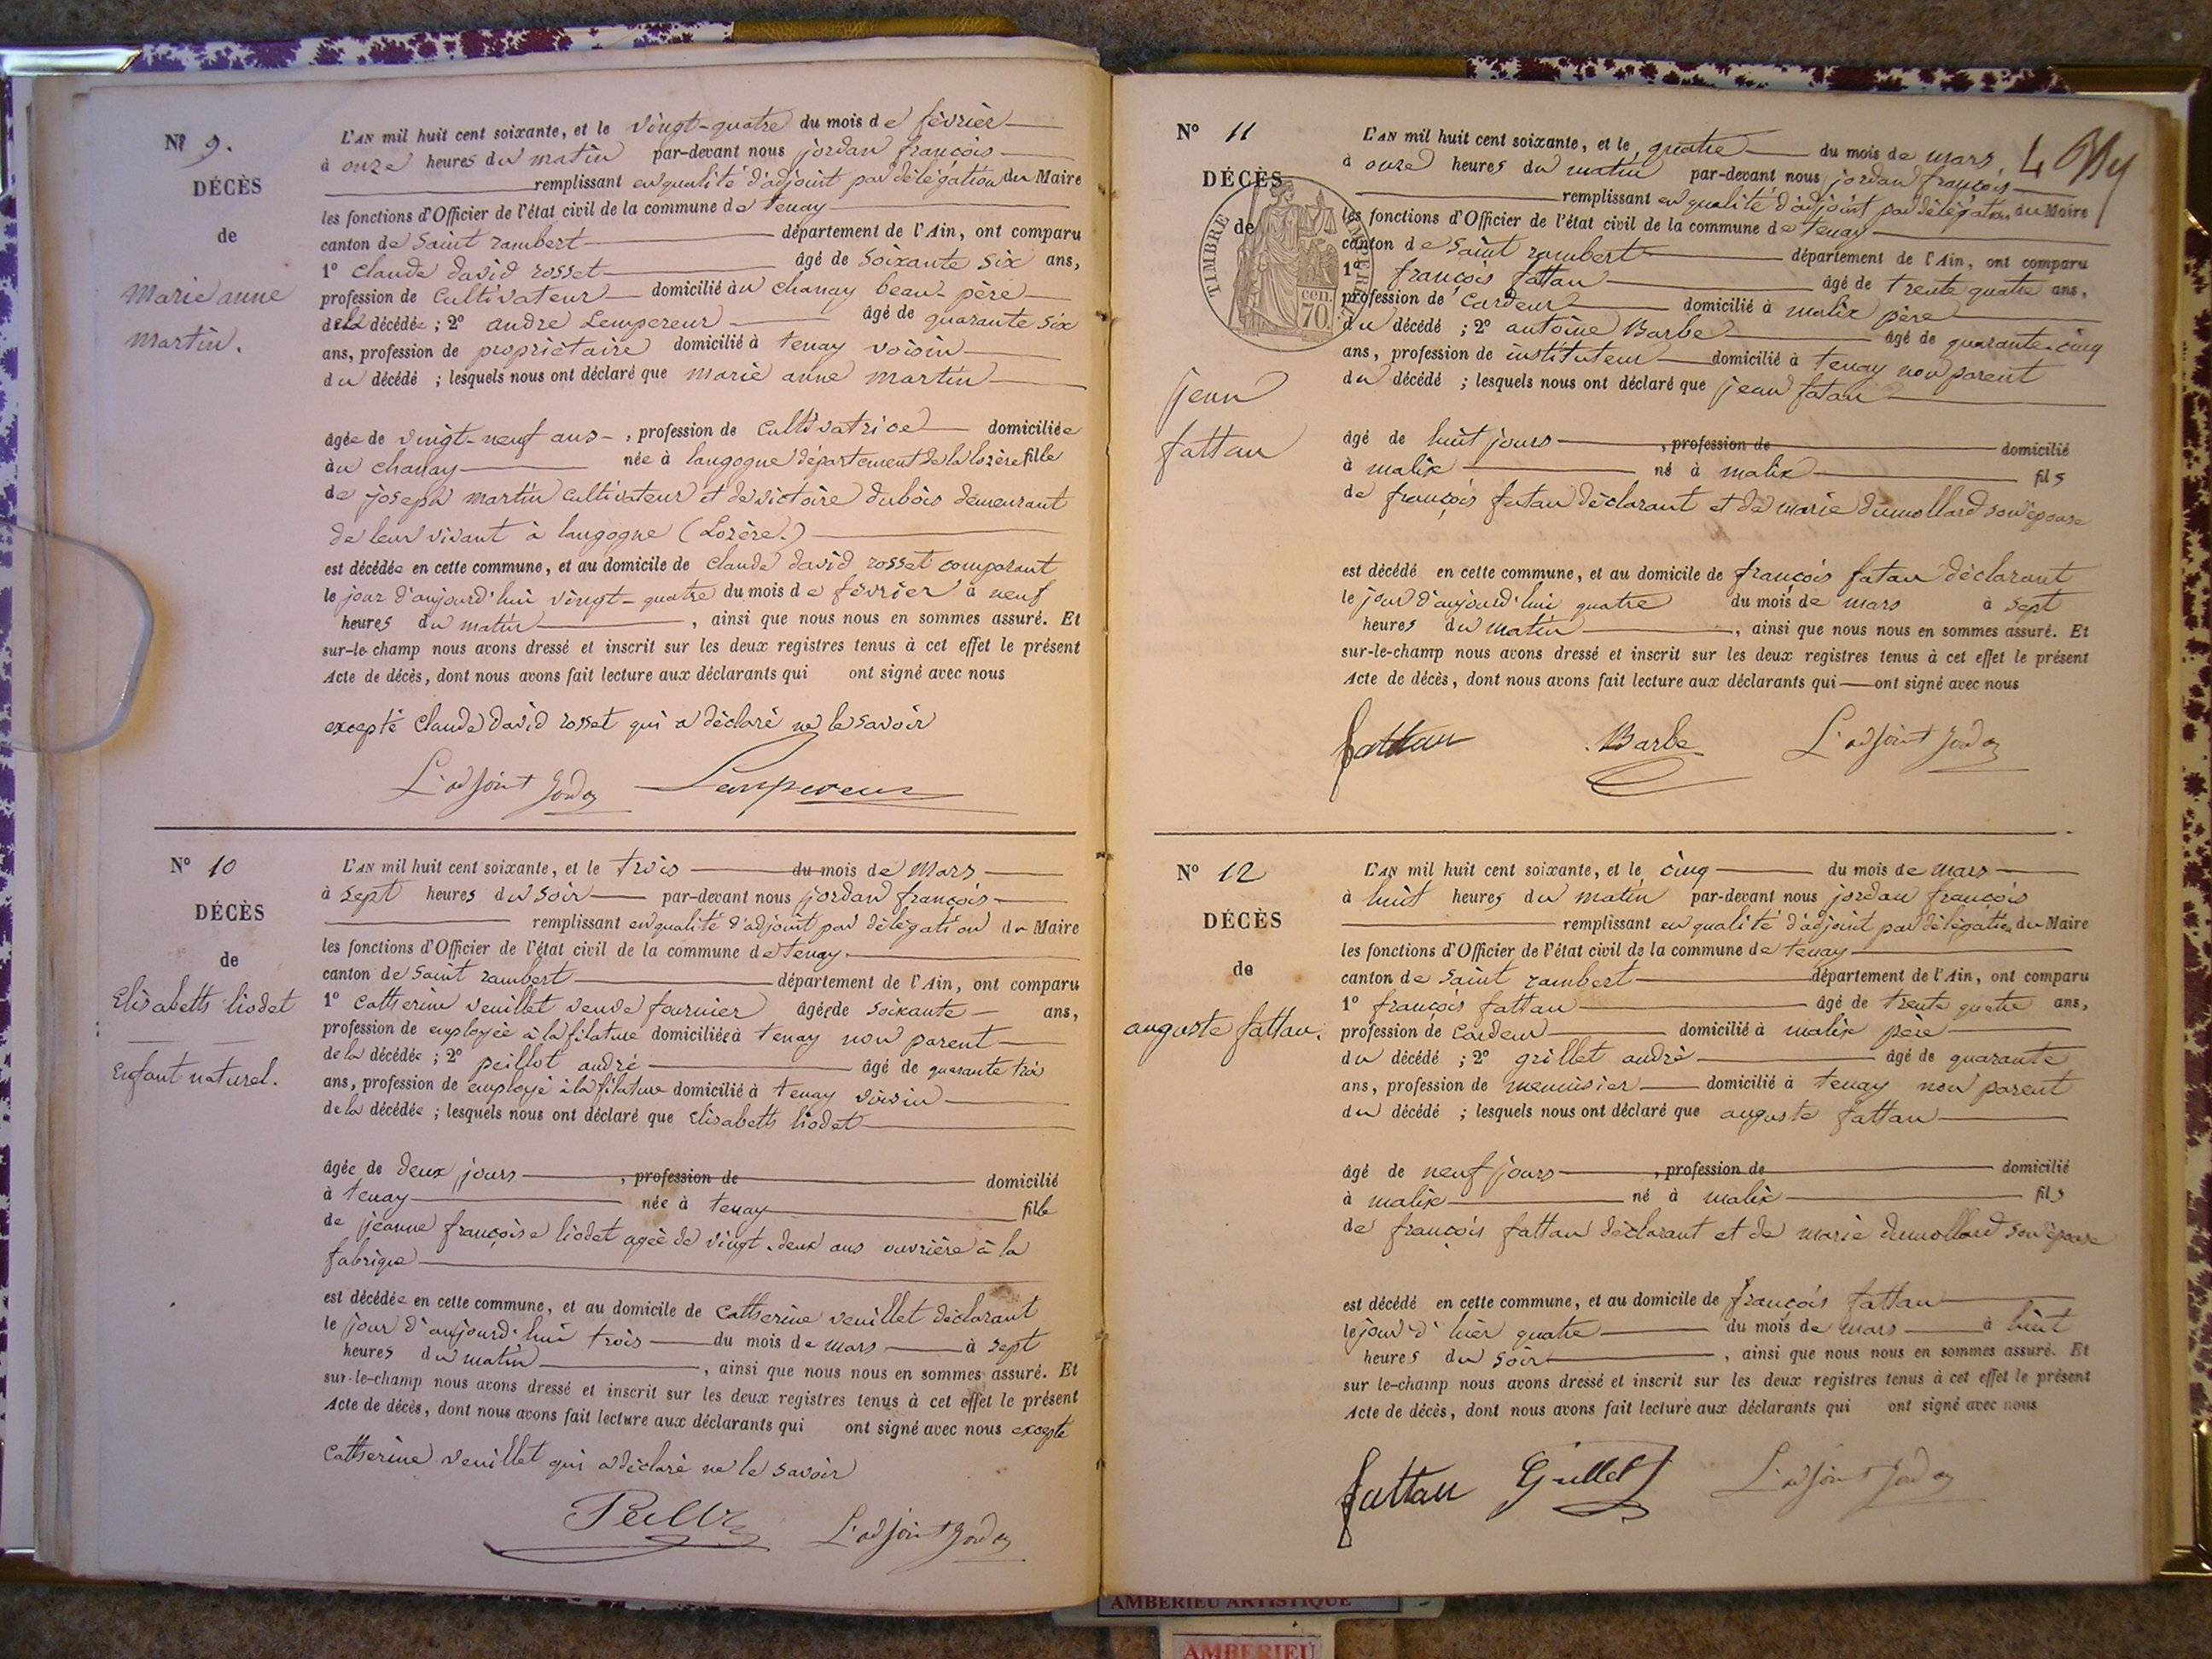 N° 9.
DÉCÈS
de
Marie anne
Martin.
L'AN mil huit cent soixante, et le vingt-quatre du mois de février
à onze heures du matin par-devant nous jordan françois
remplissant en qualité d'adjoint par délégation du Maire
les fonctions d'Officier de l'état civil de la commune de tenay
canton de Saint rambert département de l'Ain, ont comparu
1° Claude david rosset âgé de soixante six ans,
profession de Cultivateur domicilié au chanay beau-père
de la décédée ; 2° andre Lempereur âgé de quarante six
ans, profession de propriétaire domicilié à tenay voisin
du décédé ; lesquels nous ont déclaré que marie anne martin
âgée de vingt-neuf ans, profession de Cultivatrice domiciliée
au chanay née à langogne département de la lozère fille
de joseph martin cultivateur et de victoire dubois demeurant
de leur vivant à langogne (Lozère.)
est décédée en cette commune, et au domicile de Claude david rosset comparant
le jour d'aujourd'hui vingt-quatre du mois de février à neuf
heures du matin, ainsi que nous nous en sommes assuré. Et
sur-le-champ nous avons dressé et inscrit sur les deux registres tenus à cet effet le présent
Acte de décès, dont nous avons fait lecture aux déclarants qui ont signé avec nous
excepté Claude David rosset qui a déclaré ne le savoir
L'adjoint Jordan Lempereur
N° 10
DÉCÈS
de
Elisabeth liodet
Enfant naturel.
L'AN mil huit cent soixante, et le trois du mois de Mars
à sept heures du soir par-devant nous jordan françois
remplissant en qualité d'adjoint par délégation du Maire
les fonctions d'Officier de l'état civil de la commune de tenay
canton de Saint rambert département de l'Ain, ont comparu
1° Catherine veuillet veuve fournier âgée de soixante ans,
profession de employée à la filature domiciliée à tenay non parent
de la décédée ; 2° peillot andré âgé de quarante trois
ans, profession de employé à la filature domicilié à tenay voisin
de la décédée ; lesquels nous ont déclaré que Elisabeth liodet
âgée de deux jours, profession de domicilié
à tenay née à tenay fille
de jeanne françoise liodet agée de vingt-deux ans ouvrière à la
fabrique
est décédée en cette commune, et au domicile de Catherine veuillet déclarant
le jour d'aujourd'hui trois du mois de mars à sept
heures du matin, ainsi que nous nous en sommes assuré. Et
sur-le-champ nous avons dressé et inscrit sur les deux registres tenus à cet effet le présent
Acte de décès, dont nous avons fait lecture aux déclarants qui ont signé avec nous excepté
Catherine veuillet qui a déclaré ne le savoir
L'adjoint Jordan
N° 11
DÉCÈS
de
TIMBRE IMPERIAL
70 cen.
jean
fattan
L'AN mil huit cent soixante, et le quatre du mois de mars
à onze heures du matin par-devant nous jordan françois
remplissant en qualité d'adjoint par délégation du Maire
les fonctions d'Officier de l'état civil de la commune de tenay
canton de Saint rambert département de l'Ain, ont comparu
1° françois fattan âgé de trente quatre ans,
profession de Cardeur domicilié à malix père
du décédé ; 2° antoine Barbe âgé de quarante-cinq
ans, profession de instituteur domicilié à tenay non parent
du décédé ; lesquels nous ont déclaré que jean fatan
âgé de huit jours, profession de domicilié
à malix né à malix fils
de françois fatan déclarant et de marie dumollard son épouse
est décédé en cette commune, et au domicile de françois fatan déclarant
le jour d'aujourd'hui quatre du mois de mars à sept
heures du matin, ainsi que nous nous en sommes assuré. Et
sur-le-champ nous avons dressé et inscrit sur les deux registres tenus à cet effet le présent
Acte de décès, dont nous avons fait lecture aux déclarants qui ont signé avec nous
fattan Barbe L'adjoint Jordan
N° 12
DÉCÈS
de
auguste fattan.
L'AN mil huit cent soixante, et le cinq du mois de mars
à huit heures du matin par-devant nous jordan françois
remplissant en qualité d'adjoint par délégation du Maire
les fonctions d'Officier de l'état civil de la commune de tenay
canton de Saint rambert département de l'Ain, ont comparu
1° françois fattan âgé de trente quatre ans,
profession de Cardeur domicilié à malix père
du décédé ; 2° grillet andré âgé de quarante
ans, profession de menuisier domicilié à tenay non parent
du décédé ; lesquels nous ont déclaré que auguste fattan
âgé de neuf jours, profession de domicilié
à malix né à malix fils
de françois fattan déclarant et de marie dumollard son épouse
est décédé en cette commune, et au domicile de françois fattan
le jour d'hier quatre du mois de mars à huit
heures du soir, ainsi que nous nous en sommes assuré. Et
sur le-champ nous avons dressé et inscrit sur les deux registres tenus à cet effet le présent
Acte de décès, dont nous avons fait lecture aux déclarants qui ont signé avec nous
fattan Grillet L'adjoint Jordan
AMBERIEU ARTISTIQUE
AMBERIEU